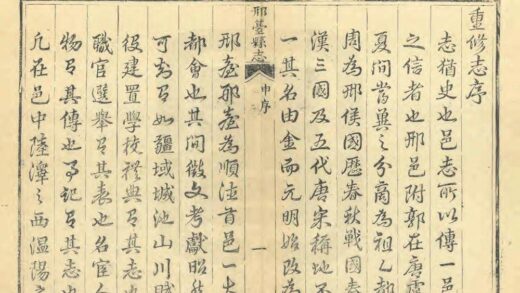 重修志序
志猶史也邑志所以傳一邑
之信者也邢邑附郭在唐虞
夏間嘗冀之分商為祖乙都
周為邢侯國歷春秋戰國秦
漢三國及五代唐宋稱地不
一其名由金而元明始改為
邢臺縣志 中序 一
邢臺邢臺為順德首邑一大
都會也其間徵文考獻昭然
可如疆域城池山川賦
役建置學校禮典有其志也
職官選舉有其表也名宦人
物有其傳也事記有其志也
凡在邑中陸澤之西溫陽之